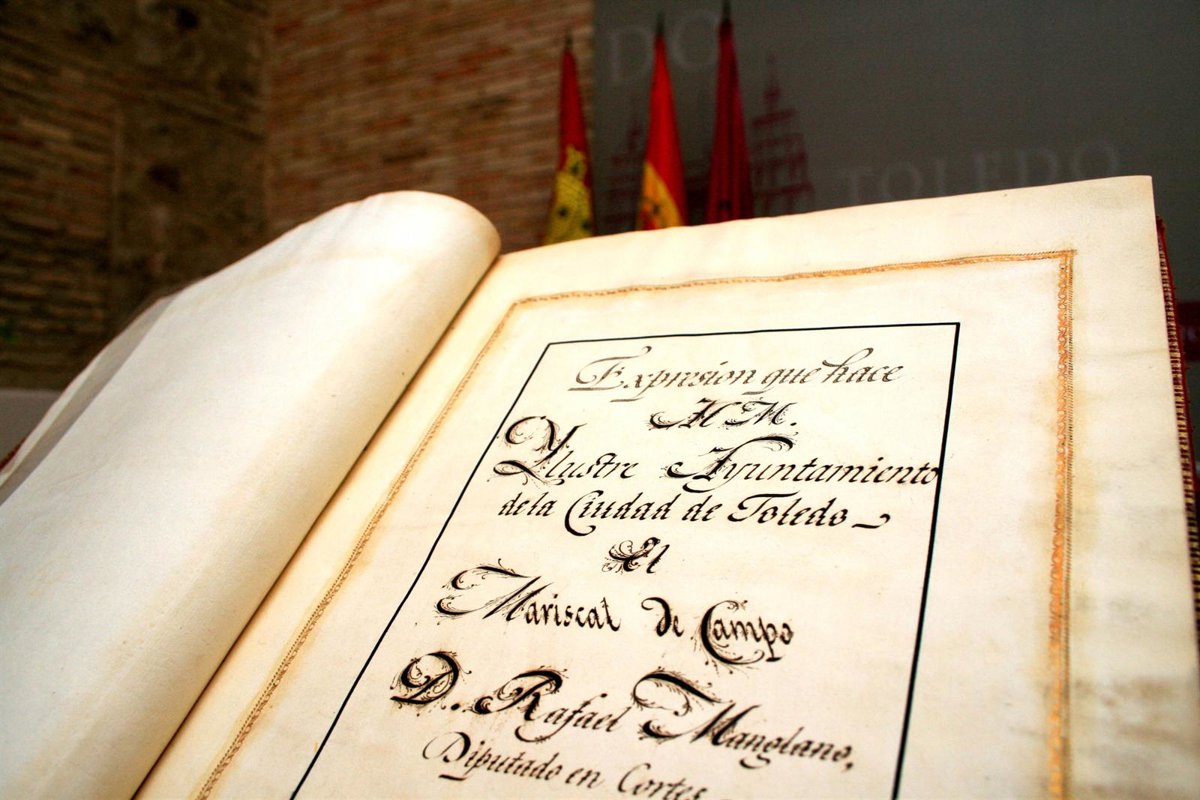 DO
TOLEDO
Expresion que hace
Al M.
Yllustre Ayuntamiento
de la Ciudad de Toledo
El
Mariscal de Campo
D. Rafael Manglano,
Diputado en Cortes